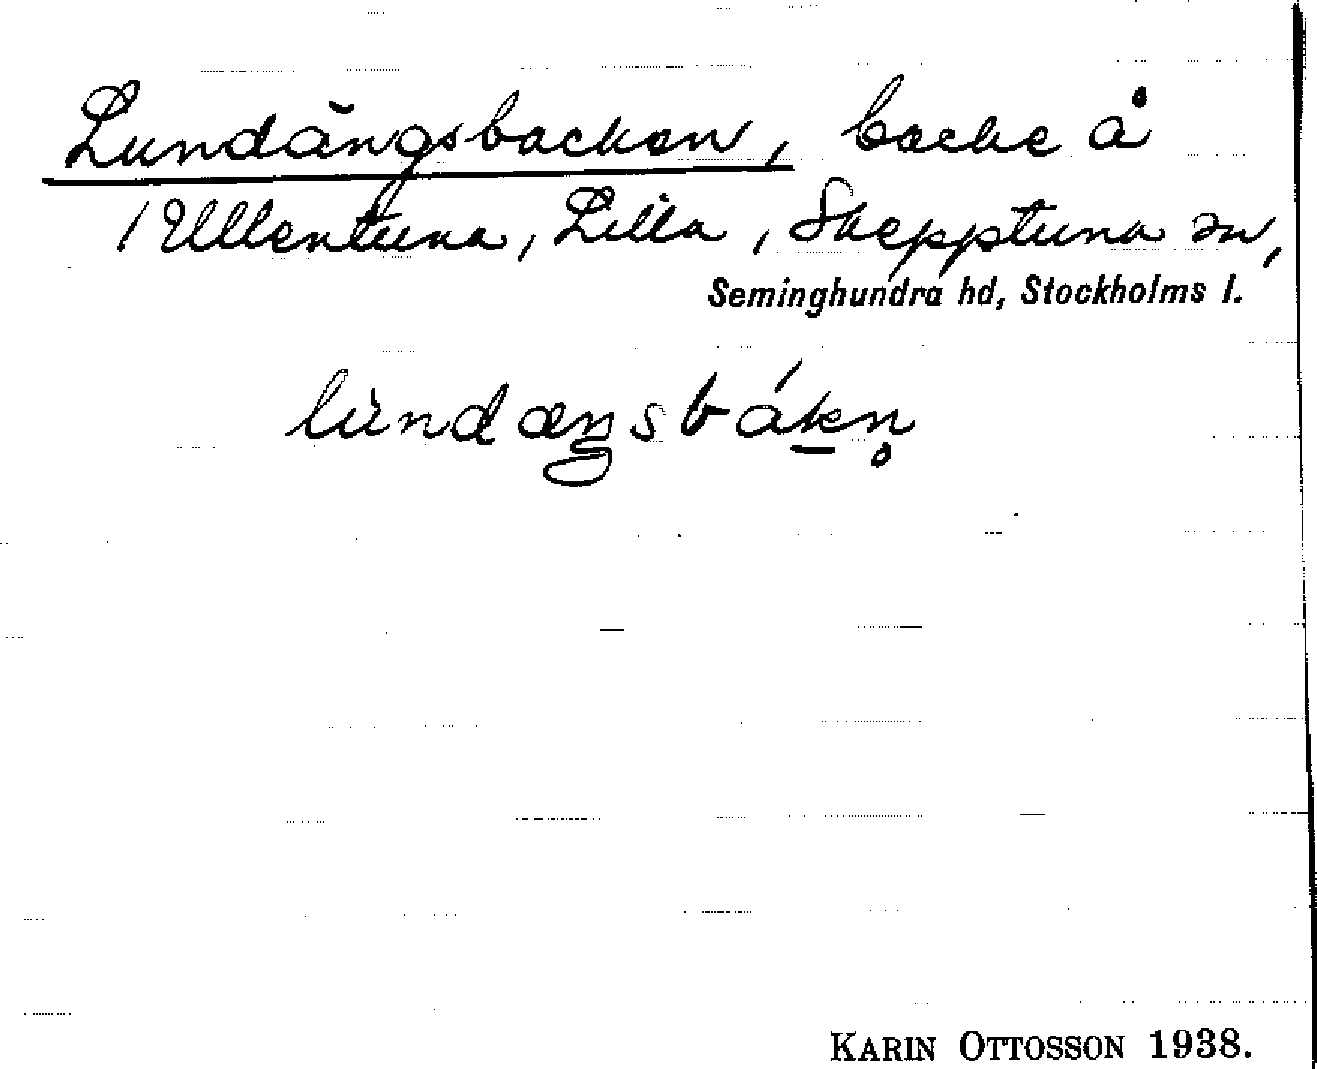 Lundängsbacken, backe å
/Ullentuna, Lilla, Skepptuna sn,
Seminghundra hd, Stockholms l.
lùndæŋsbákn̥
KARIN OTTOSSON 1938.